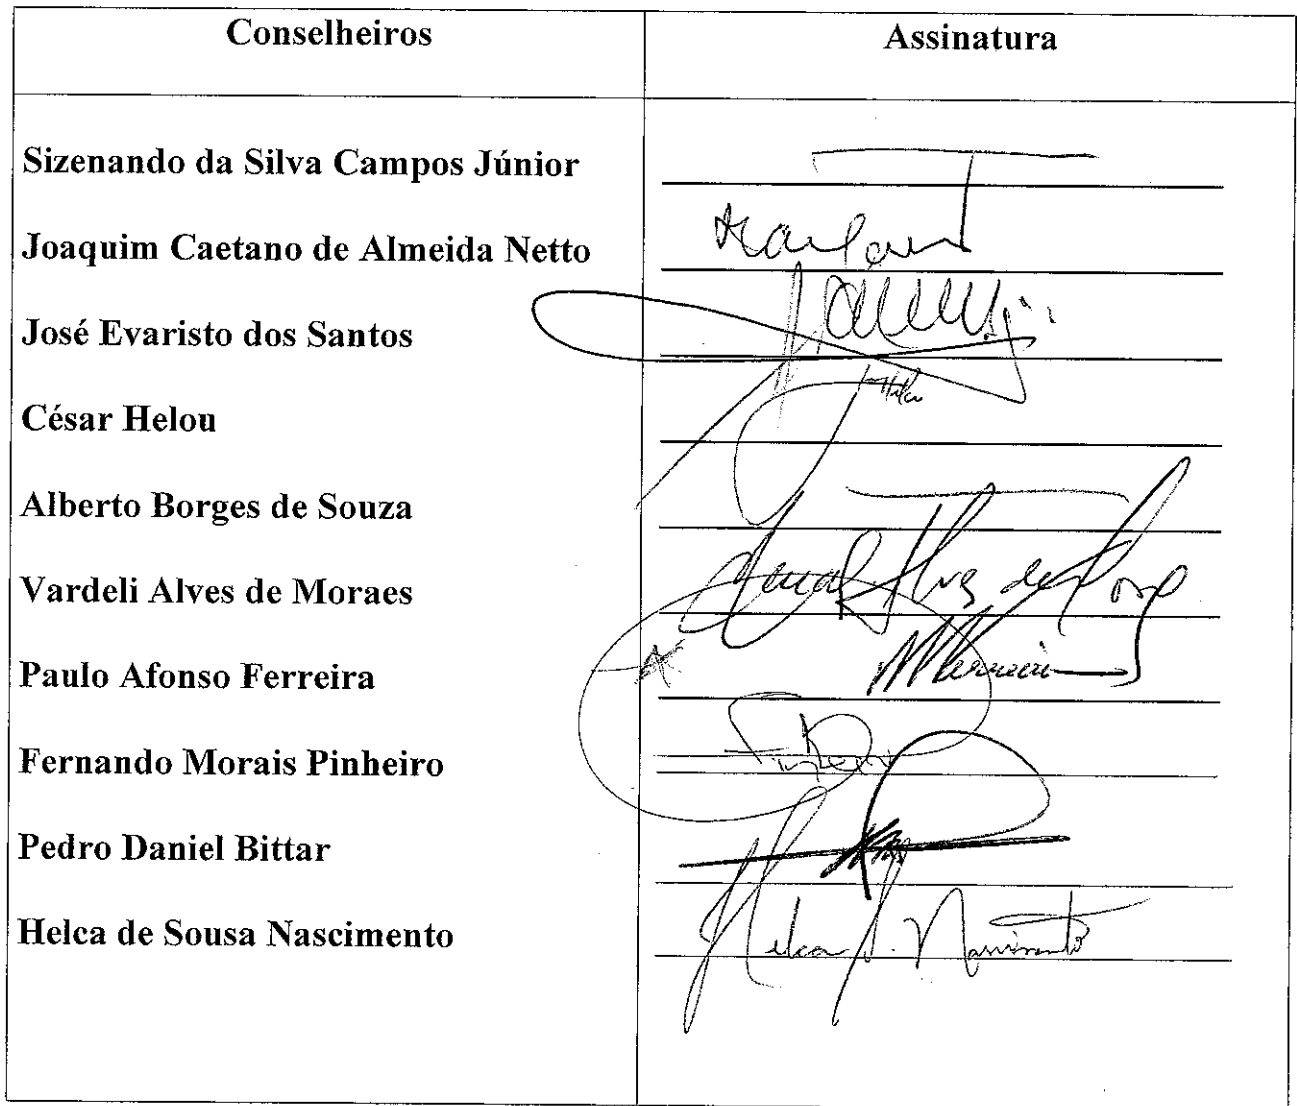 Conselheiros
Assinatura
Sizenando da Silva Campos Júnior
Joaquim Caetano de Almeida Netto
José Evaristo dos Santos
César Helou
Alberto Borges de Souza
Vardeli Alves de Moraes
Alves de
Paulo Afonso Ferreira
Ferreira
Fernando Morais Pinheiro
Pedro Daniel Bittar
Helca de Sousa Nascimento
Helca S. Nascimento